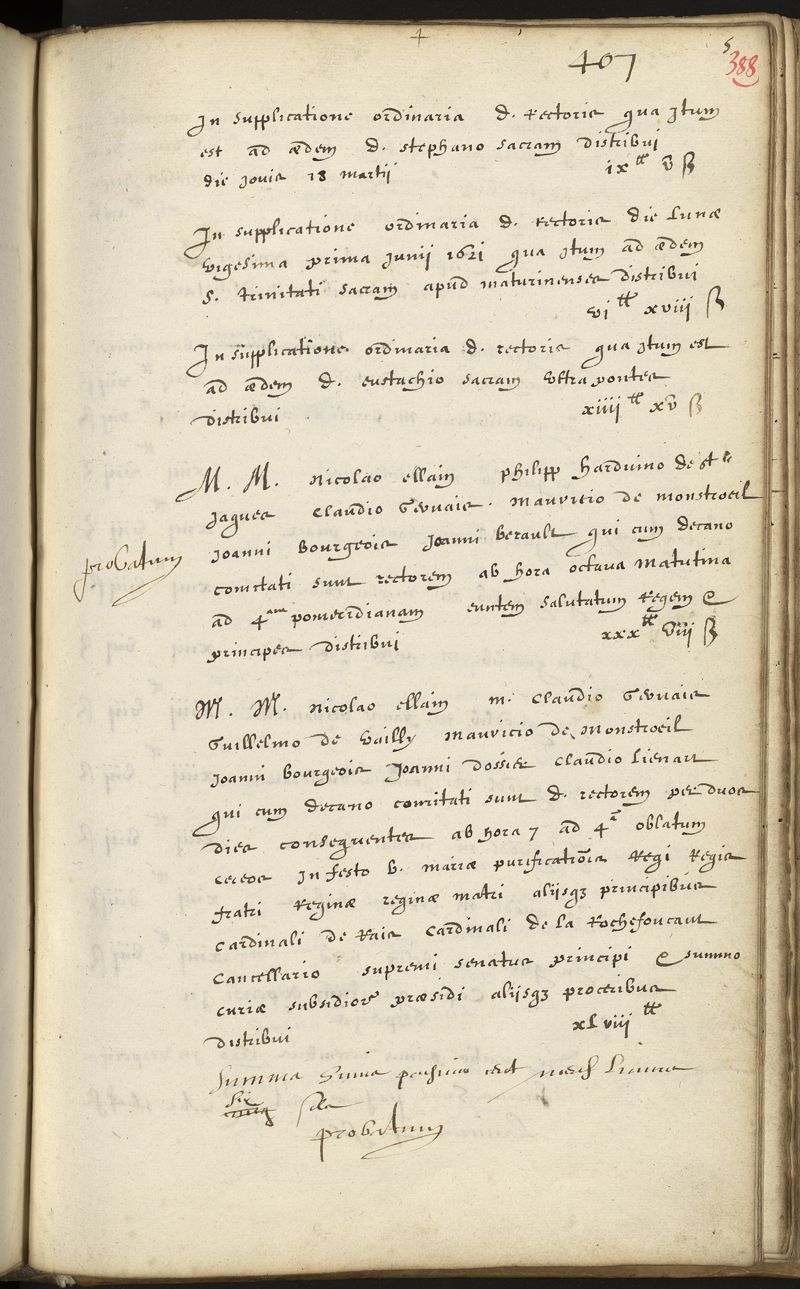 407
5
388
In supplicatione ordinaria d. Rectoris qua itum
est ad ædem d. stephano sacram distribui
die Jovis 18 martii
ix tt v ß
In supplicatione ordinaria d. Rectoris die Lunæ
vigesima prima Junii 1621 qua itum ad ædem
S. trinitati sacram apud maturinenses distribui
vi tt xviii ß
In supplicatione ordinaria d. rectoris qua itum est
ad ædem d. eustachio sacram vltra pontes
distribui
xiiii tt xv ß
M. M. Nicolao ellain philipp harduino de St
Jaques Claudio Gervais. Mauricio de monstroeil
probatum
Joanni Bourgeois Joanni Berault qui cum decano
comitati sunt rectorem ab hora octava matutina
ad 4am pomeridianam euntem salutatum Regem &
principes distribui
xxx tt viii ß
M. M. Nicolao ellain m. Claudio Gervais
Guillelmo de vailly Mauricio de Monstroeil
Joanni bourgeois Joanni dossier Claudio Lienart
qui cum decano comitati sunt d. rectorem per duos
dies consequentes ab hora 7 ad 4a oblatum
cereos In festo b. mariæ purificatiōis Regi Regis
fratri Reginæ reginæ matri alijsqȝ principibus
Cardinali de Rais Cardinali de la Rochefoucaut
Cancellario supremi senatus principi & summo
curiæ subsidiorū præsidi alijsqȝ proceribus
distribui
xlviii tt
Summa
six
probatum